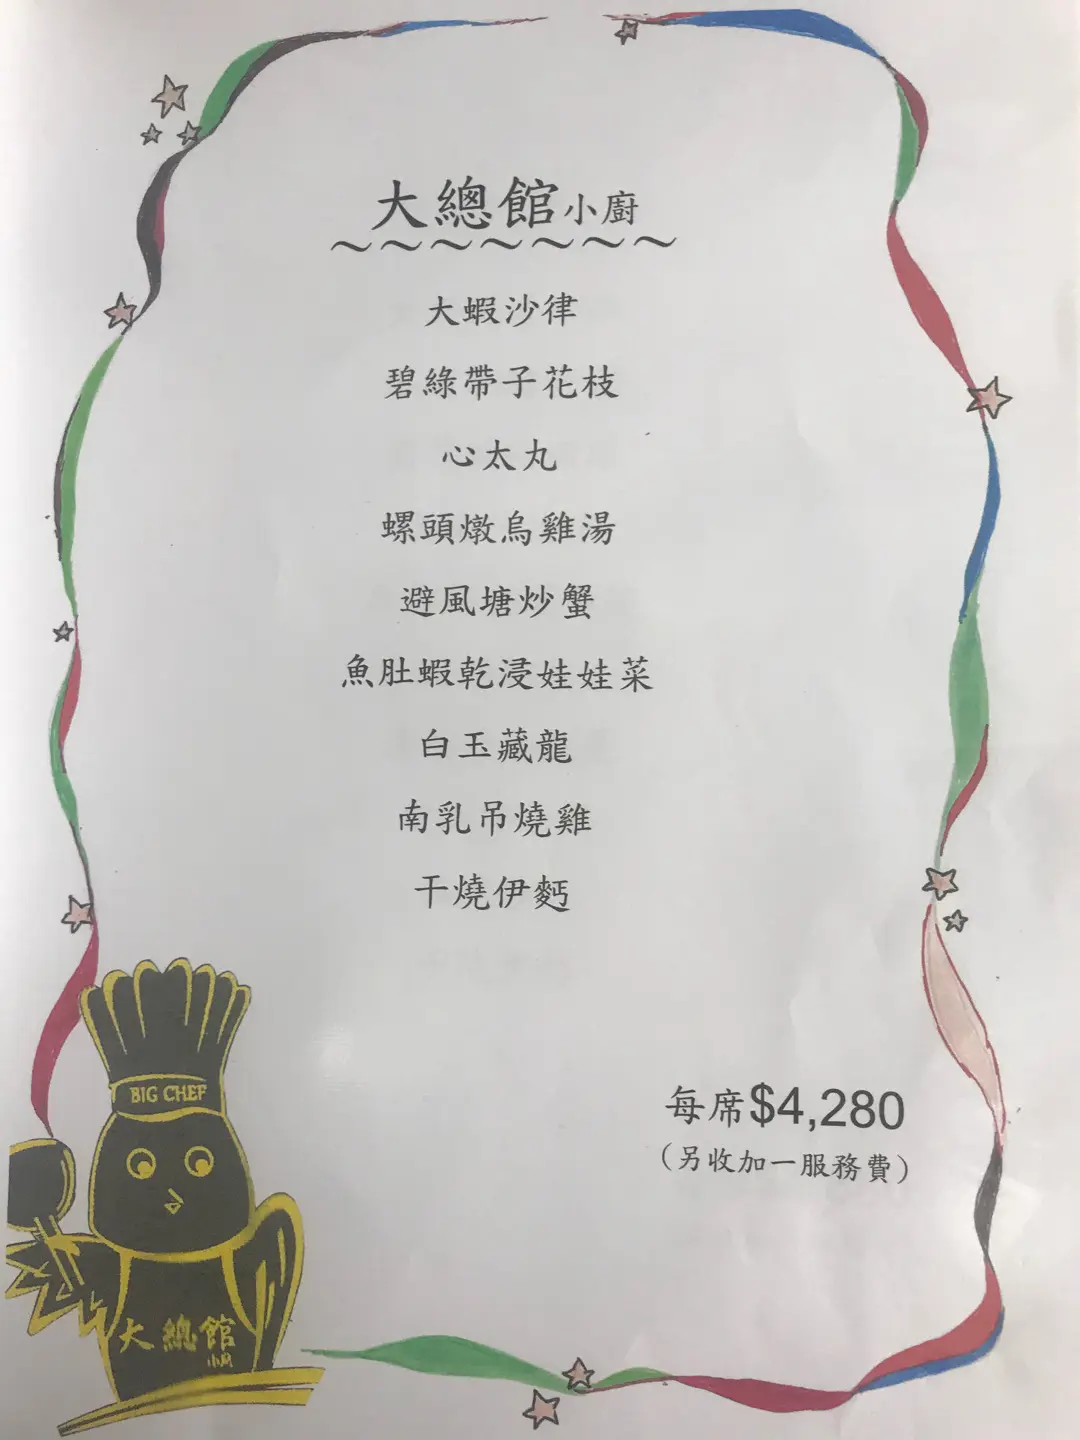 大總館小廚
大蝦沙律
碧綠帶子花枝
心太丸
螺頭燉烏雞湯
避風塘炒蟹
魚肚蝦乾浸娃娃菜
白玉藏龍
南乳吊燒雞
干燒伊麪
每席$4,280
（另收加一服務費）
BIG CHEF
大總館
小廚